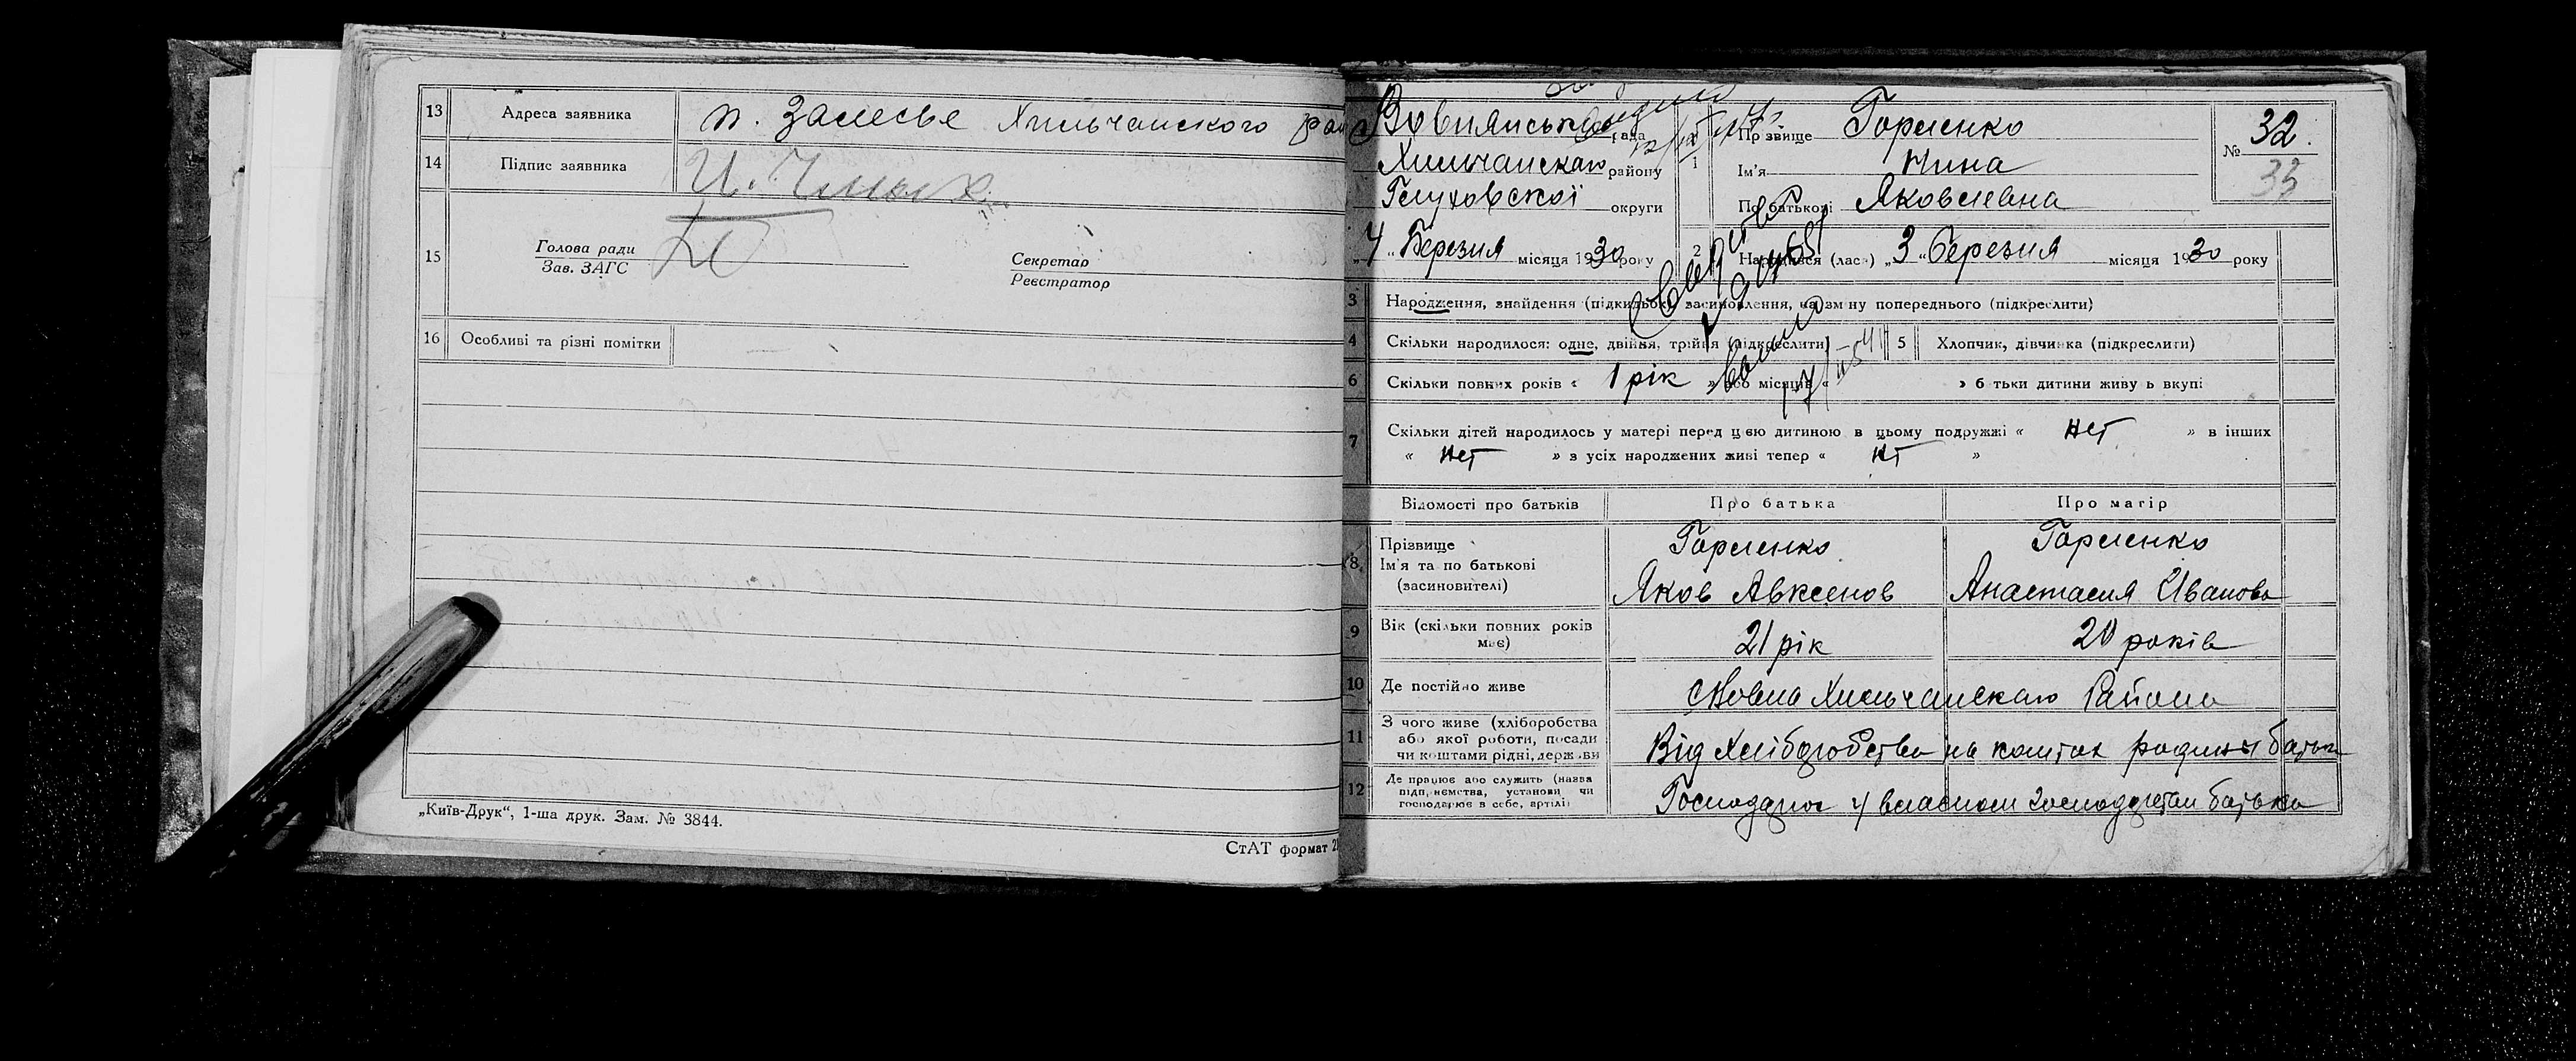 13 Адреса заявника п. Залесье Хильчанского рай
14 Підпис заявника
15 Голова ради
Зав. ЗАГС
Секретар
Реєстратор
16 Особливі та різні помітки —
„Київ-Друк“, 1-ша друк. Зам. № 3844.
СтАТ формат
рада
Хильчанскаго району
Глуховскої округи
4 “ Березня місяця 1930 року
№ 32.
33
1 Прізвище Горленко
Ім'я Нина
По батькові Яковлевна
2 Народився (лась) „3“ березня місяця 1930 року
3 Народження, знайдення (підкидьок) засиновлення, на зміну попереднього (підкреслити)
4 Скільки народилося: одне, двійня, трійня (підкреслити)
5 Хлопчик, дівчинка (підкреслити)
6 Скільки повних років « 1 рік » або місяців « » батьки дитини живуть вкупі
7 Скільки дітей народилось у матері перед цією дитиною в цьому подружжі « нет » в інших
« нет » з усіх народжених живі тепер « нт »
Відомості про батьків Про батька Про матір
8 Прізвище Горленко Горленко
Ім'я та по батькові
(засиновителі) Яков Авксенов Анастасия Иванова
9 Вік (скільки повних років має) 21 рік 20 років
10 Де постійно живе Хильчанскаго Района
11 З чого живе (хліборобства
або якої роботи, посади
чи коштами рідні, держави
Від Хліборобства на коштах родины батька
12 Де працює або служить (назва
підприємства, установи чи
господарює в себе, артілі)
у власном господарстві батька